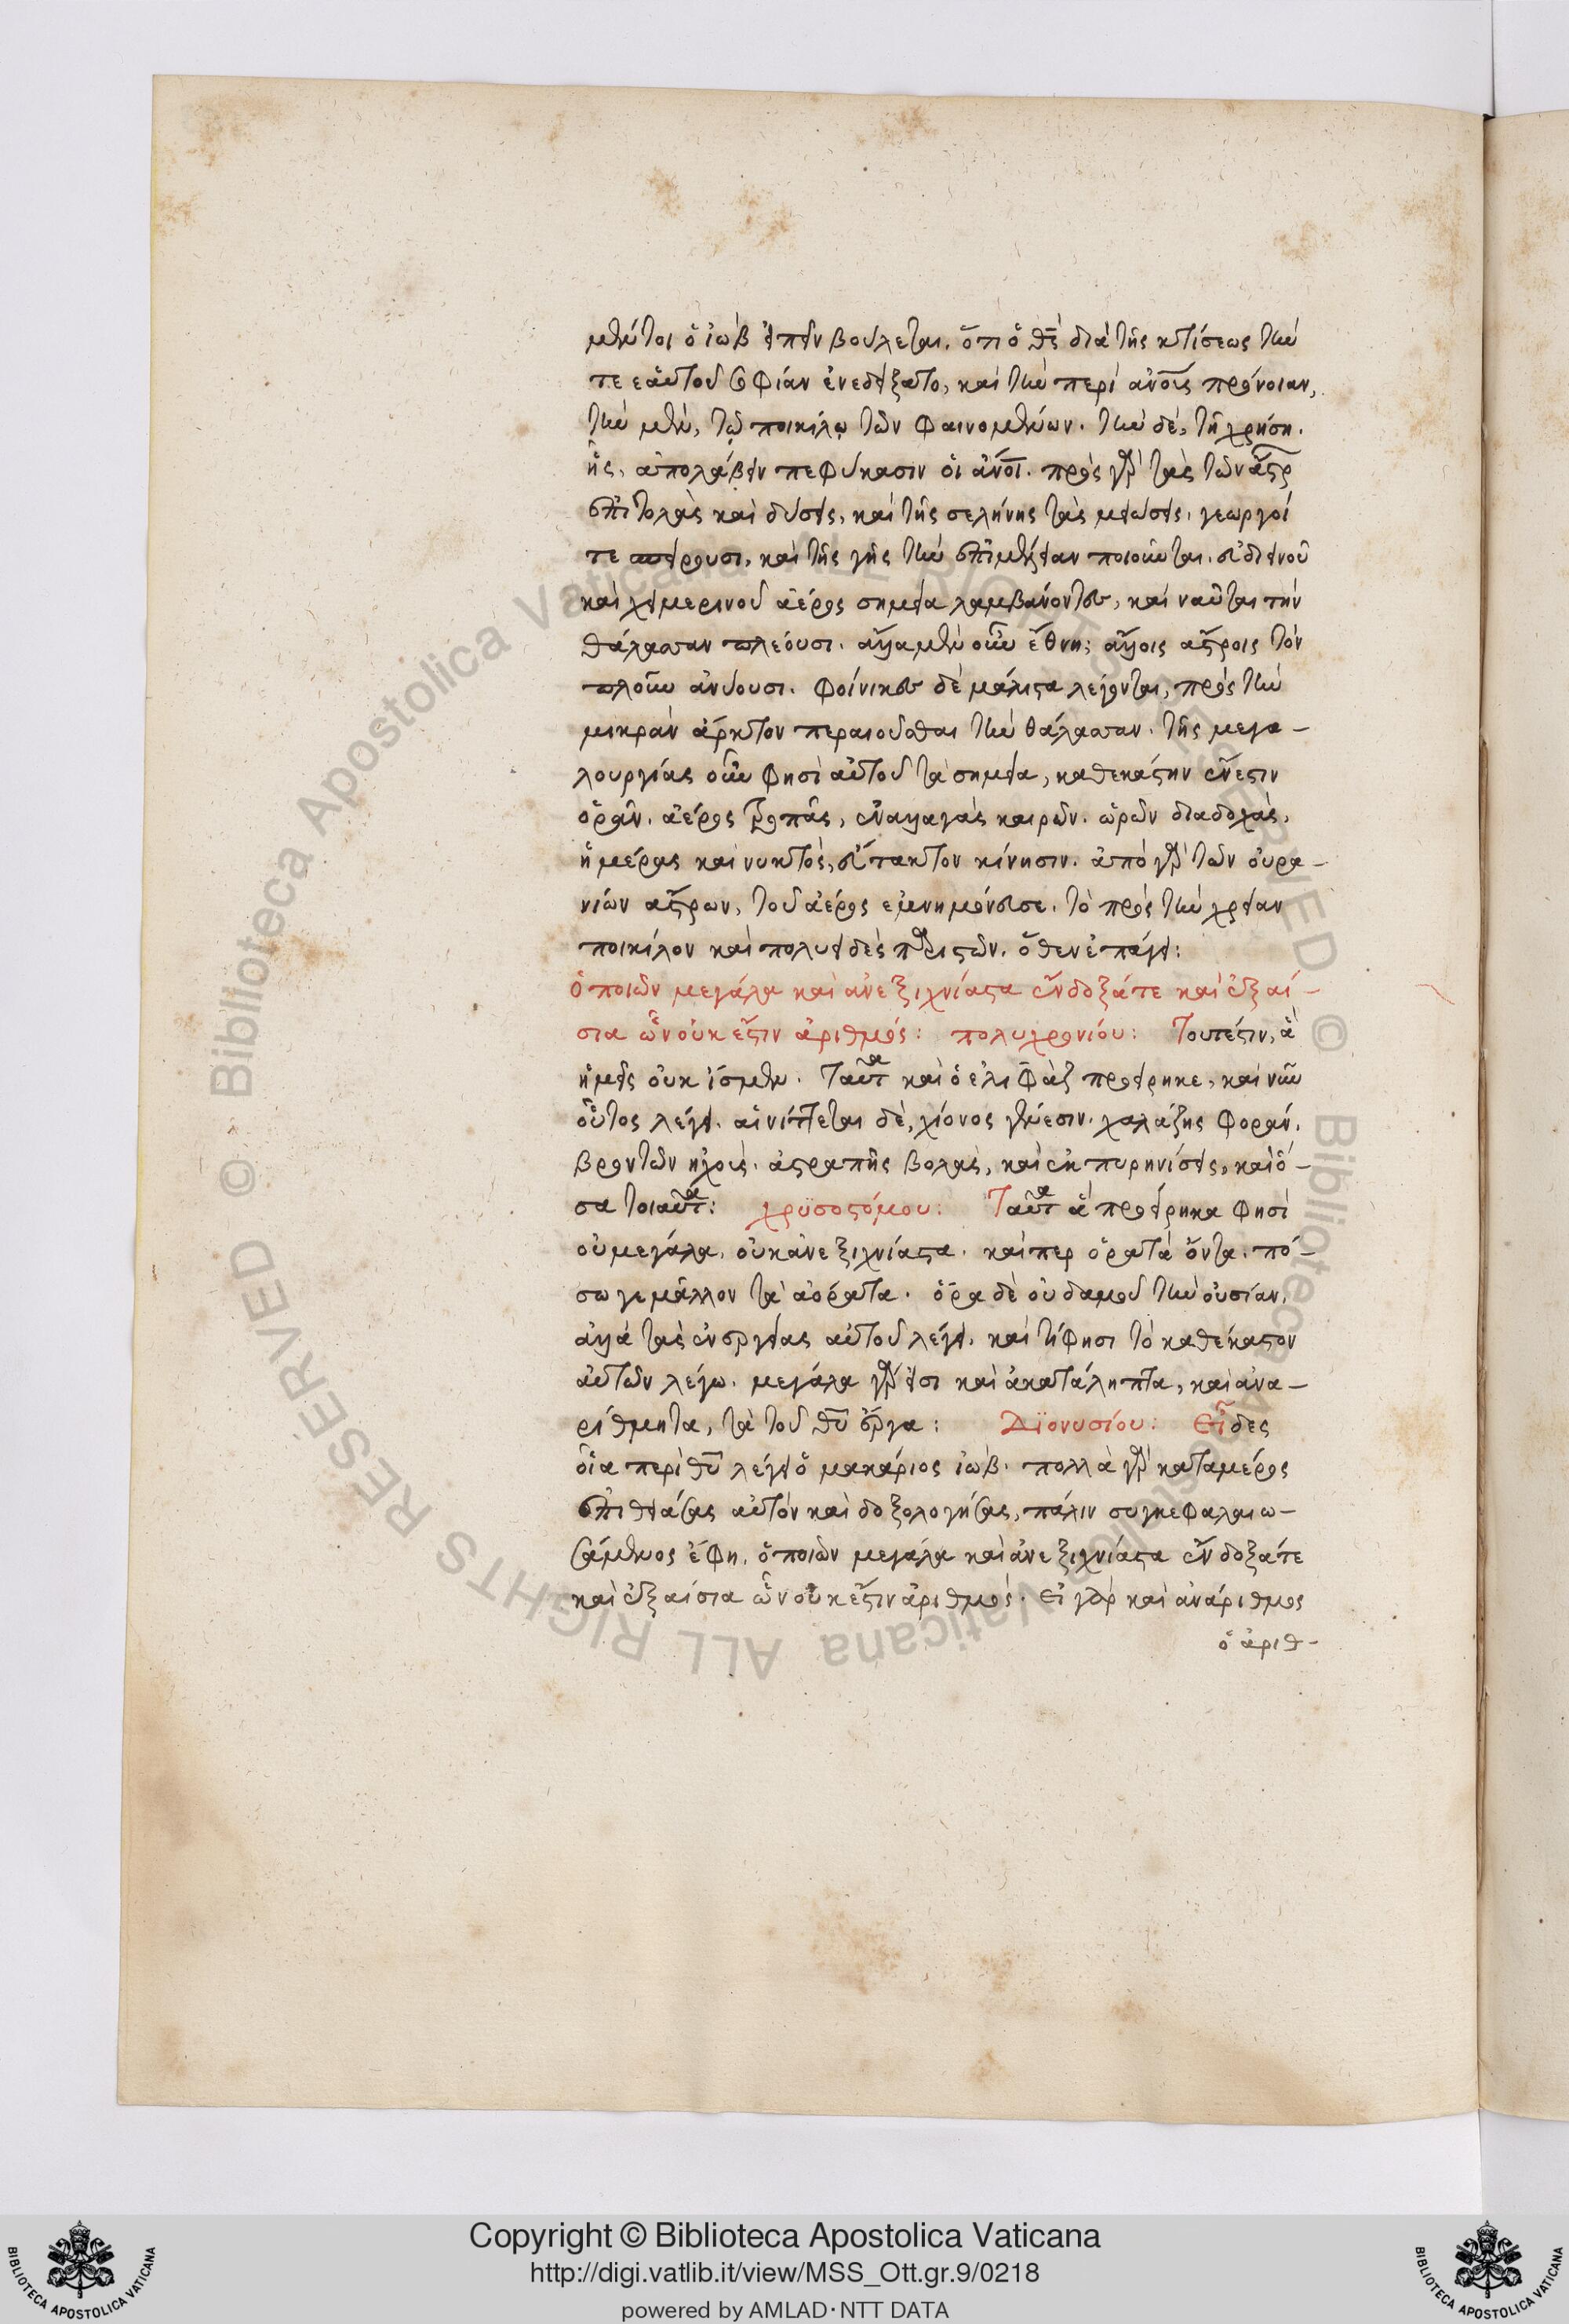 μέντοι ὁ ἰὼβ εἰπεῖν βούλεται. ὅτι ὁ θς διὰ τῆς κτίσεως τὴν
τε ἑαυτοῦ σοφίαν ἐνεδείξατο, καὶ τὴν περὶ ἀνοις πρόνοιαν,
τὴν μὲν, τῷ ποικίλῳ τῶν φαινομένων. τὴν δὲ, τῇ χρήσει.
ἧς, ἀπολαβεῖν πεφύκασιν οἱ ἄνοι. πρὸς γὰρ τὰς τῶν ἄστρ
ἐπιτολὰς καὶ δύσεις, καὶ τῆς σελήνης τὰς μειώσεις, γεωργοί
τε σπείρουσι, καὶ τῆς γῆς τὴν ἐπιμέλειαν ποιοῦνται. εὐδιεινοῦ
καὶ χειμερινοῦ ἀέρος σημεῖα λαμβάνοντες, καὶ ναῦται τὴν
θάλασσαν πλέουσι. ἄλλα μὲν οὖν ἔθνη, ἄλλοις ἄστροις τὸν
πλοῦν ἀνύουσι. φοίνικες δὲ μάλιστα λέγονται, πρὸς τὴν
μικρὰν ἄρκτον περαιοῦσθαι τὴν θάλασσαν. τῆς μεγα-
λουργίας οὖν φησὶ αὐτοῦ τὰ σημεῖα, καθεκάστην ἔνεστιν
ὁρᾶν. ἀέρος τροπὰς, ἐναλλαγὰς καιρῶν. ὡρῶν διαδοχὰς,
ἡμέρας καὶ νυκτὸς, εὔτακτον κίνησιν. ἀπὸ γὰρ τῶν οὐρα-
νίων ἄστρων, τοῦ ἀέρος ἐμνημόνευσε. τὸ πρὸς τὴν χρείαν
ποικίλον καὶ πολυειδὲς παριστῶν. ὅθεν ἐπάγει:
ὁ ποιῶν μεγάλα καὶ ἀνεξιχνίαστα ἔνδοξά τε καὶ ἐξαί-
σια ὧν οὐκ ἔστιν ἀριθμός: πολυχρονίου: Τουτέστιν, ἃ
ἡμεῖς οὐκ ἴσμεν. Ταῦτα καὶ ὁ ελιφὰζ προείρηκε, καὶ νῦν
οὗτος λέγει. αἰνίττεται δὲ, χίονος γένεσιν. χαλάζης φορὰν.
βροντῶν ἤχους. ἀστραπῆς βολὰς, καὶ ἐκπυρηνίσεις, καὶ ὅ-
σα τοιαῦτα: χρϋσοστόμου: Ταῦτα ἃ προείρηκα φησὶ
οὐ μεγάλα, οὐκ ἀνεξιχνίαστα. καίπερ ὁρατὰ ὄντα. πό-
σω γε μᾶλλον τὰ ἀόρατα. ὅρα δὲ οὐδαμοῦ τὴν οὐσίαν,
ἀλλὰ τὰς ἐνεργείας αὐτοῦ λέγει. καὶ τί φησι τὸ καθέκαστον
αὐτῶν λέγω. μεγάλα γὰρ εἰσι καὶ ἀκατάληπτα, καὶ ἀνα-
ρίθμητα, τὰ τοῦ θυ ἔργα: Διονυσίου: Εἶδες
οἷα περὶ θυ λέγει ὁ μακάριος ἰώβ. πολλὰ γὰρ καταμέρος
ἐπιθειάσας αὐτὸν καὶ δοξολογήσας, πάλιν συγκεφαλαιω-
σάμενος ἔφη. ὁ ποιῶν μεγάλα καὶ ἀνεξιχνίαστα ἔνδοξά τε
καὶ ἐξαίσια ὧν οὐκ ἔστιν ἀριθμός. Εἰ γὰρ καὶ ἀνάριθμος
ὁ ἀριθ-
Copyright © Biblioteca Apostolica Vaticana
http://digi.vatlib.it/view/MSS_Ott.gr.9/0218
powered by AMLAD·NTT DATA
BIBLIOTECA APOSTOLICA VATICANA
BIBLIOTECA APOSTOLICA VATICANA
© Biblioteca Apostolica Vaticana ALL RIGHTS RESERVED © Biblioteca Apostolica Vaticana ALL RIGHTS RESERVED